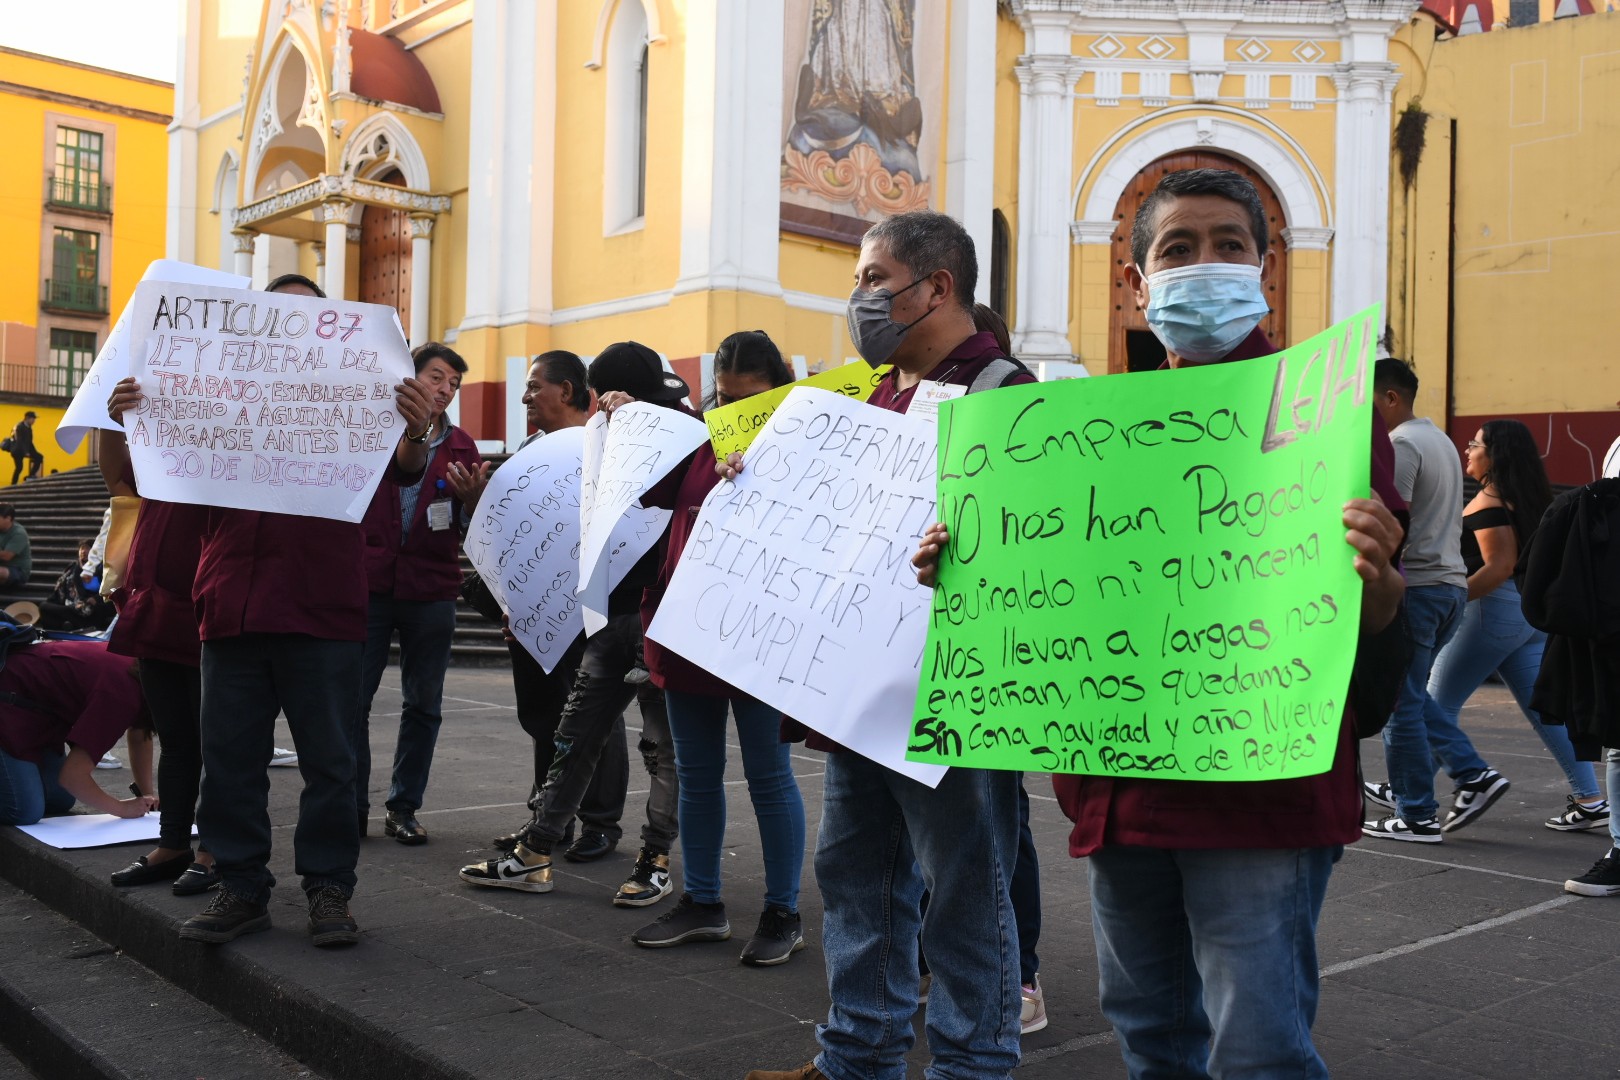 ARTICULO 87
LEY FEDERAL DEL
TRABAJO; ESTABLECE EL
DERECHO A AGUINALDO
A PAGARSE ANTES DEL
20 DE DICIEMB
Exigimos
Nuestro Aguin
quincena y
Podemos
Callados
STA
Asta Cuan
GOBERNAD
NOS PROMETI
PARTE DE IMSS
BIENESTAR Y
CUMPLE
LEIH
La Empresa LEIH
NO nos han Pagado
Aguinaldo ni quincena
Nos llevan a largas, nos
engañan, nos quedamos
Sin Cena navidad y año Nuevo
Sin Rosca de Reyes